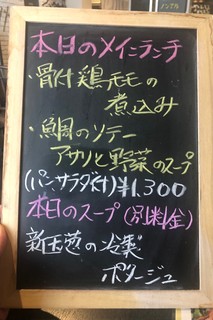 本日のメインランチ
・骨付鶏モモの
煮込み
・鯛のソテー
アサリと野菜のスープ
(パン、サラダ付)¥1,300
本日のスープ(別料金)
新玉葱の冷製
ポタージュ